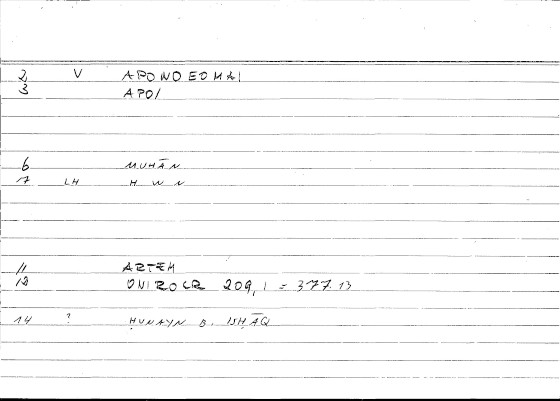 2 V APONOEOMAI
3 APO/
6 MUHĀN
7 LH H W N
11 ARTEM
12 ONIROCR 209,1 = 377.13
14 ? ḤUNAYN B. ISḤĀQ